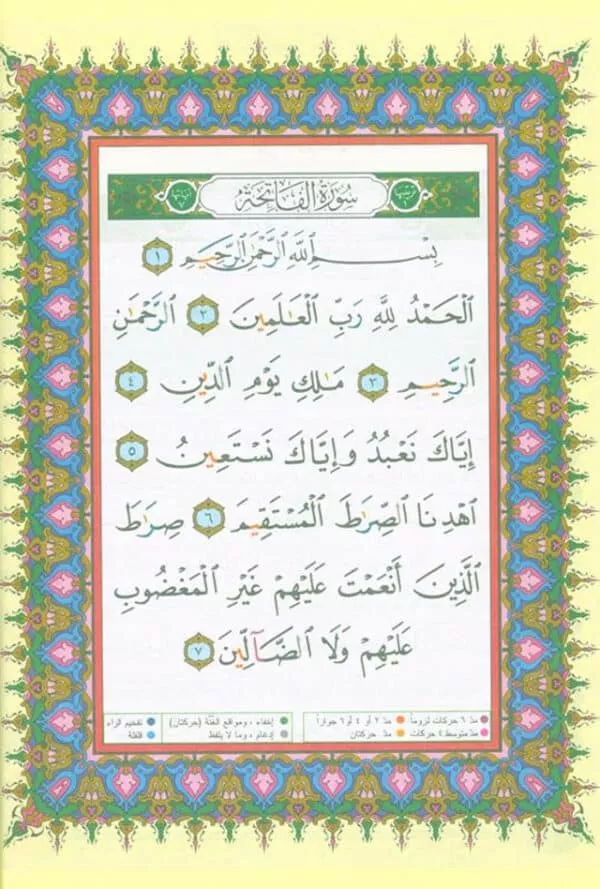 سُورَةُ الفَاتِحَةِ
بِسْمِ ٱللَّهِ ٱلرَّحْمَٰنِ ٱلرَّحِيمِ ١
ٱلْحَمْدُ لِلَّهِ رَبِّ ٱلْعَٰلَمِينَ ٢ ٱلرَّحْمَٰنِ
ٱلرَّحِيمِ ٣ مَٰلِكِ يَوْمِ ٱلدِّينِ ٤
إِيَّاكَ نَعْبُدُ وَإِيَّاكَ نَسْتَعِينُ ٥
ٱهْدِنَا ٱلصِّرَٰطَ ٱلْمُسْتَقِيمَ ٦ صِرَٰطَ
ٱلَّذِينَ أَنْعَمْتَ عَلَيْهِمْ غَيْرِ ٱلْمَغْضُوبِ
عَلَيْهِمْ وَلَا ٱلضَّآلِّينَ ٧
مدّ ٦ حركات لزوماً مدّ ٢ أو ٤ أو ٦ جوازاً
مدّ متوسط ٤ حركات مدّ حركتان
إخفاء ، ومواقع الغنّة (حركتان) تفخيم الراء
إدغام ، وما لا يلفظ قلقلة